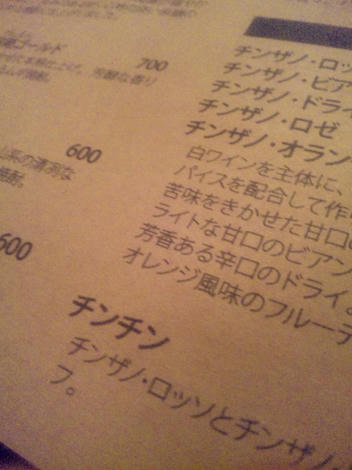 ゴールド
700
芳醇な香り
600
600
チンザノ・ロッ
チンザノ・ビア
チンザノ・ドライ
チンザノ・ロゼ
チンザノ・オラン
白ワインを主体に、
パイスを配合して作
苦味をきかせた甘口
ライトな甘口のビアン
芳香ある辛口のドライ。
オレンジ風味のフルーテ
チンチン
チンザノ・ロッソとチンザノ
フ。